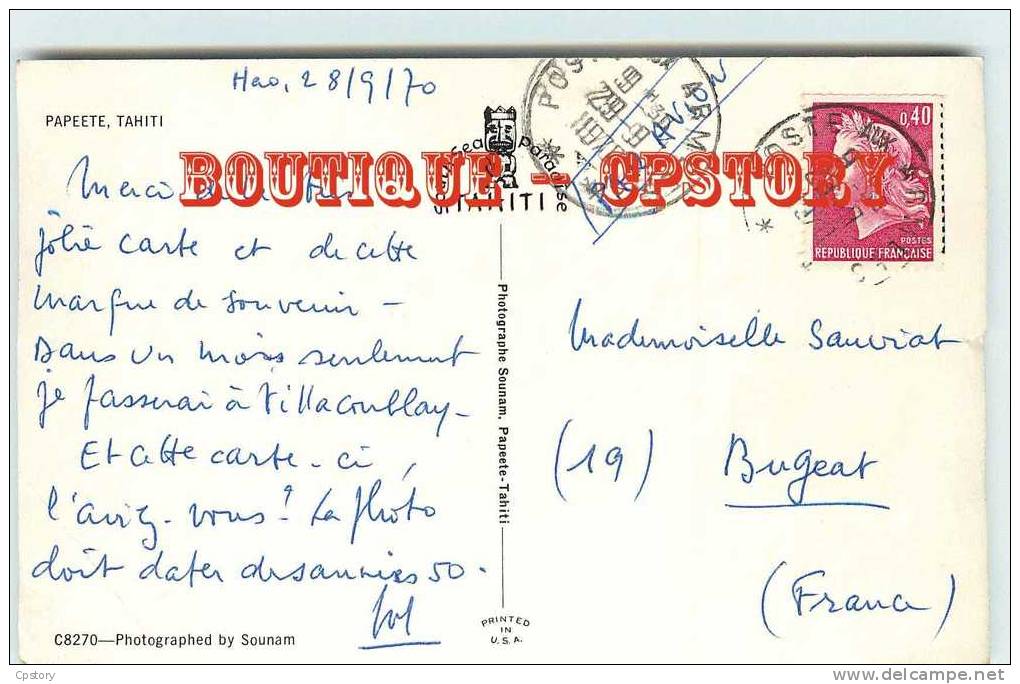 Hao, 28/9/70
PAPEETE, TAHITI
BOUTIQUE - CPSTORY
South Sea Paradise
TAHITI
Merci
jolie carte et de cette
marque de souvenir -
Dans un mois seulement
je passerai à Villacoublay -
Et cette carte-ci,
l'aviez-vous? La photo
doit dater des années 50.
C8270—Photographed by Sounam
Photographe Sounam, Papeete-Tahiti
PRINTED
IN
U.S.A.
PAR AVION
POSTE AUX ARMEES
0,40
POSTES
REPUBLIQUE FRANÇAISE
Mademoiselle Sauviat
(19) Bugeat
(France)
Cpstory
delcampe.net